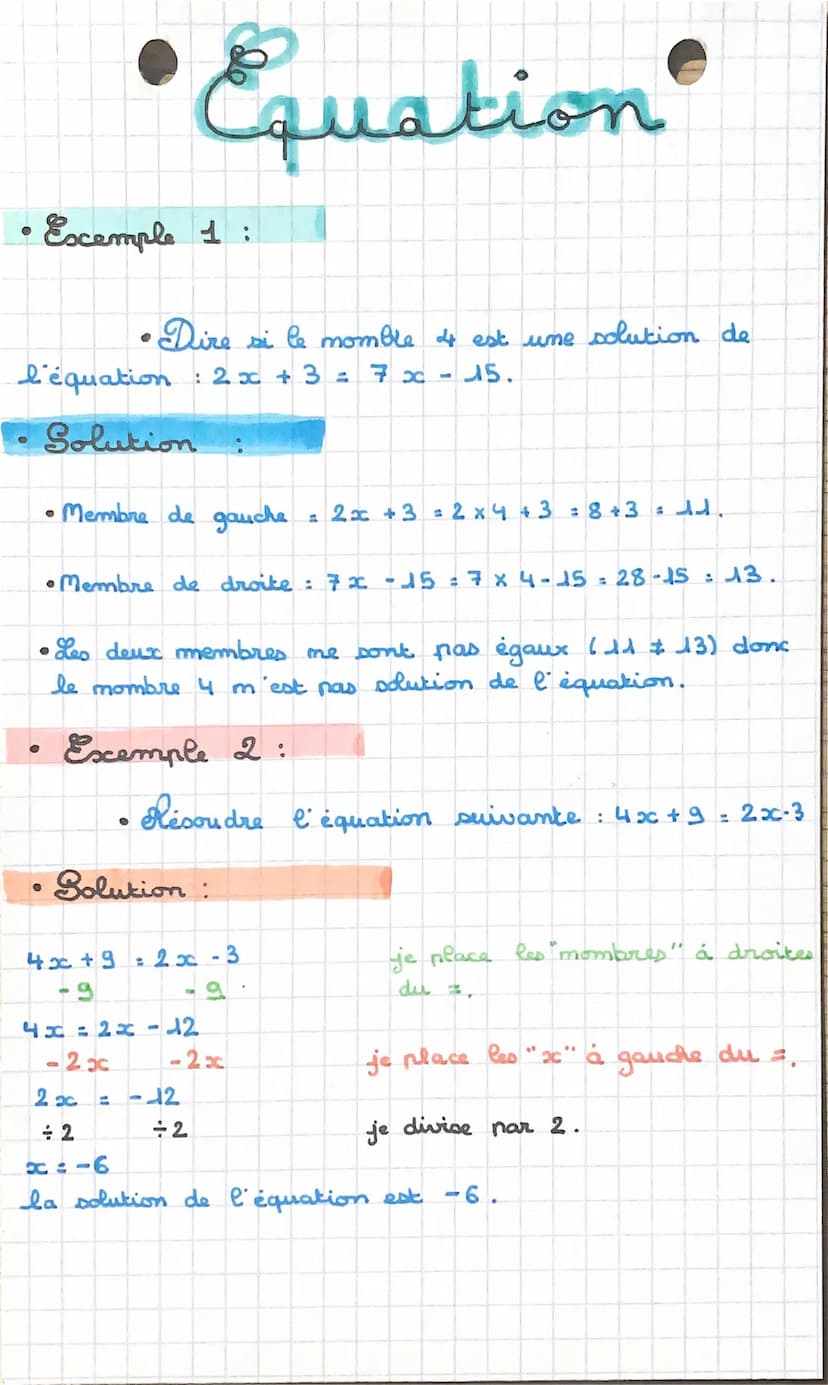 Équation
• Exemple 1 :
• Dire si le nombre 4 est une solution de
l'équation : 2x + 3 = 7x - 15.
• Solution :
• Membre de gauche = 2x + 3 = 2 x 4 + 3 = 8 + 3 = 11.
• Membre de droite : 7x - 15 = 7 x 4 - 15 = 28 - 15 = 13.
• Les deux membres ne sont pas égaux (11 ≠ 13) donc
le nombre 4 n'est pas solution de l'équation.
• Exemple 2 :
• Résoudre l'équation suivante : 4x + 9 = 2x - 3
• Solution :
4x + 9 = 2x - 3 je place les "nombres" á droites
- 9 - 9 du =.
4x = 2x - 12
- 2x - 2x je place les "x" à gauche du =.
2x = - 12
÷ 2 ÷ 2 je divise par 2.
x = -6
la solution de l'équation est -6.